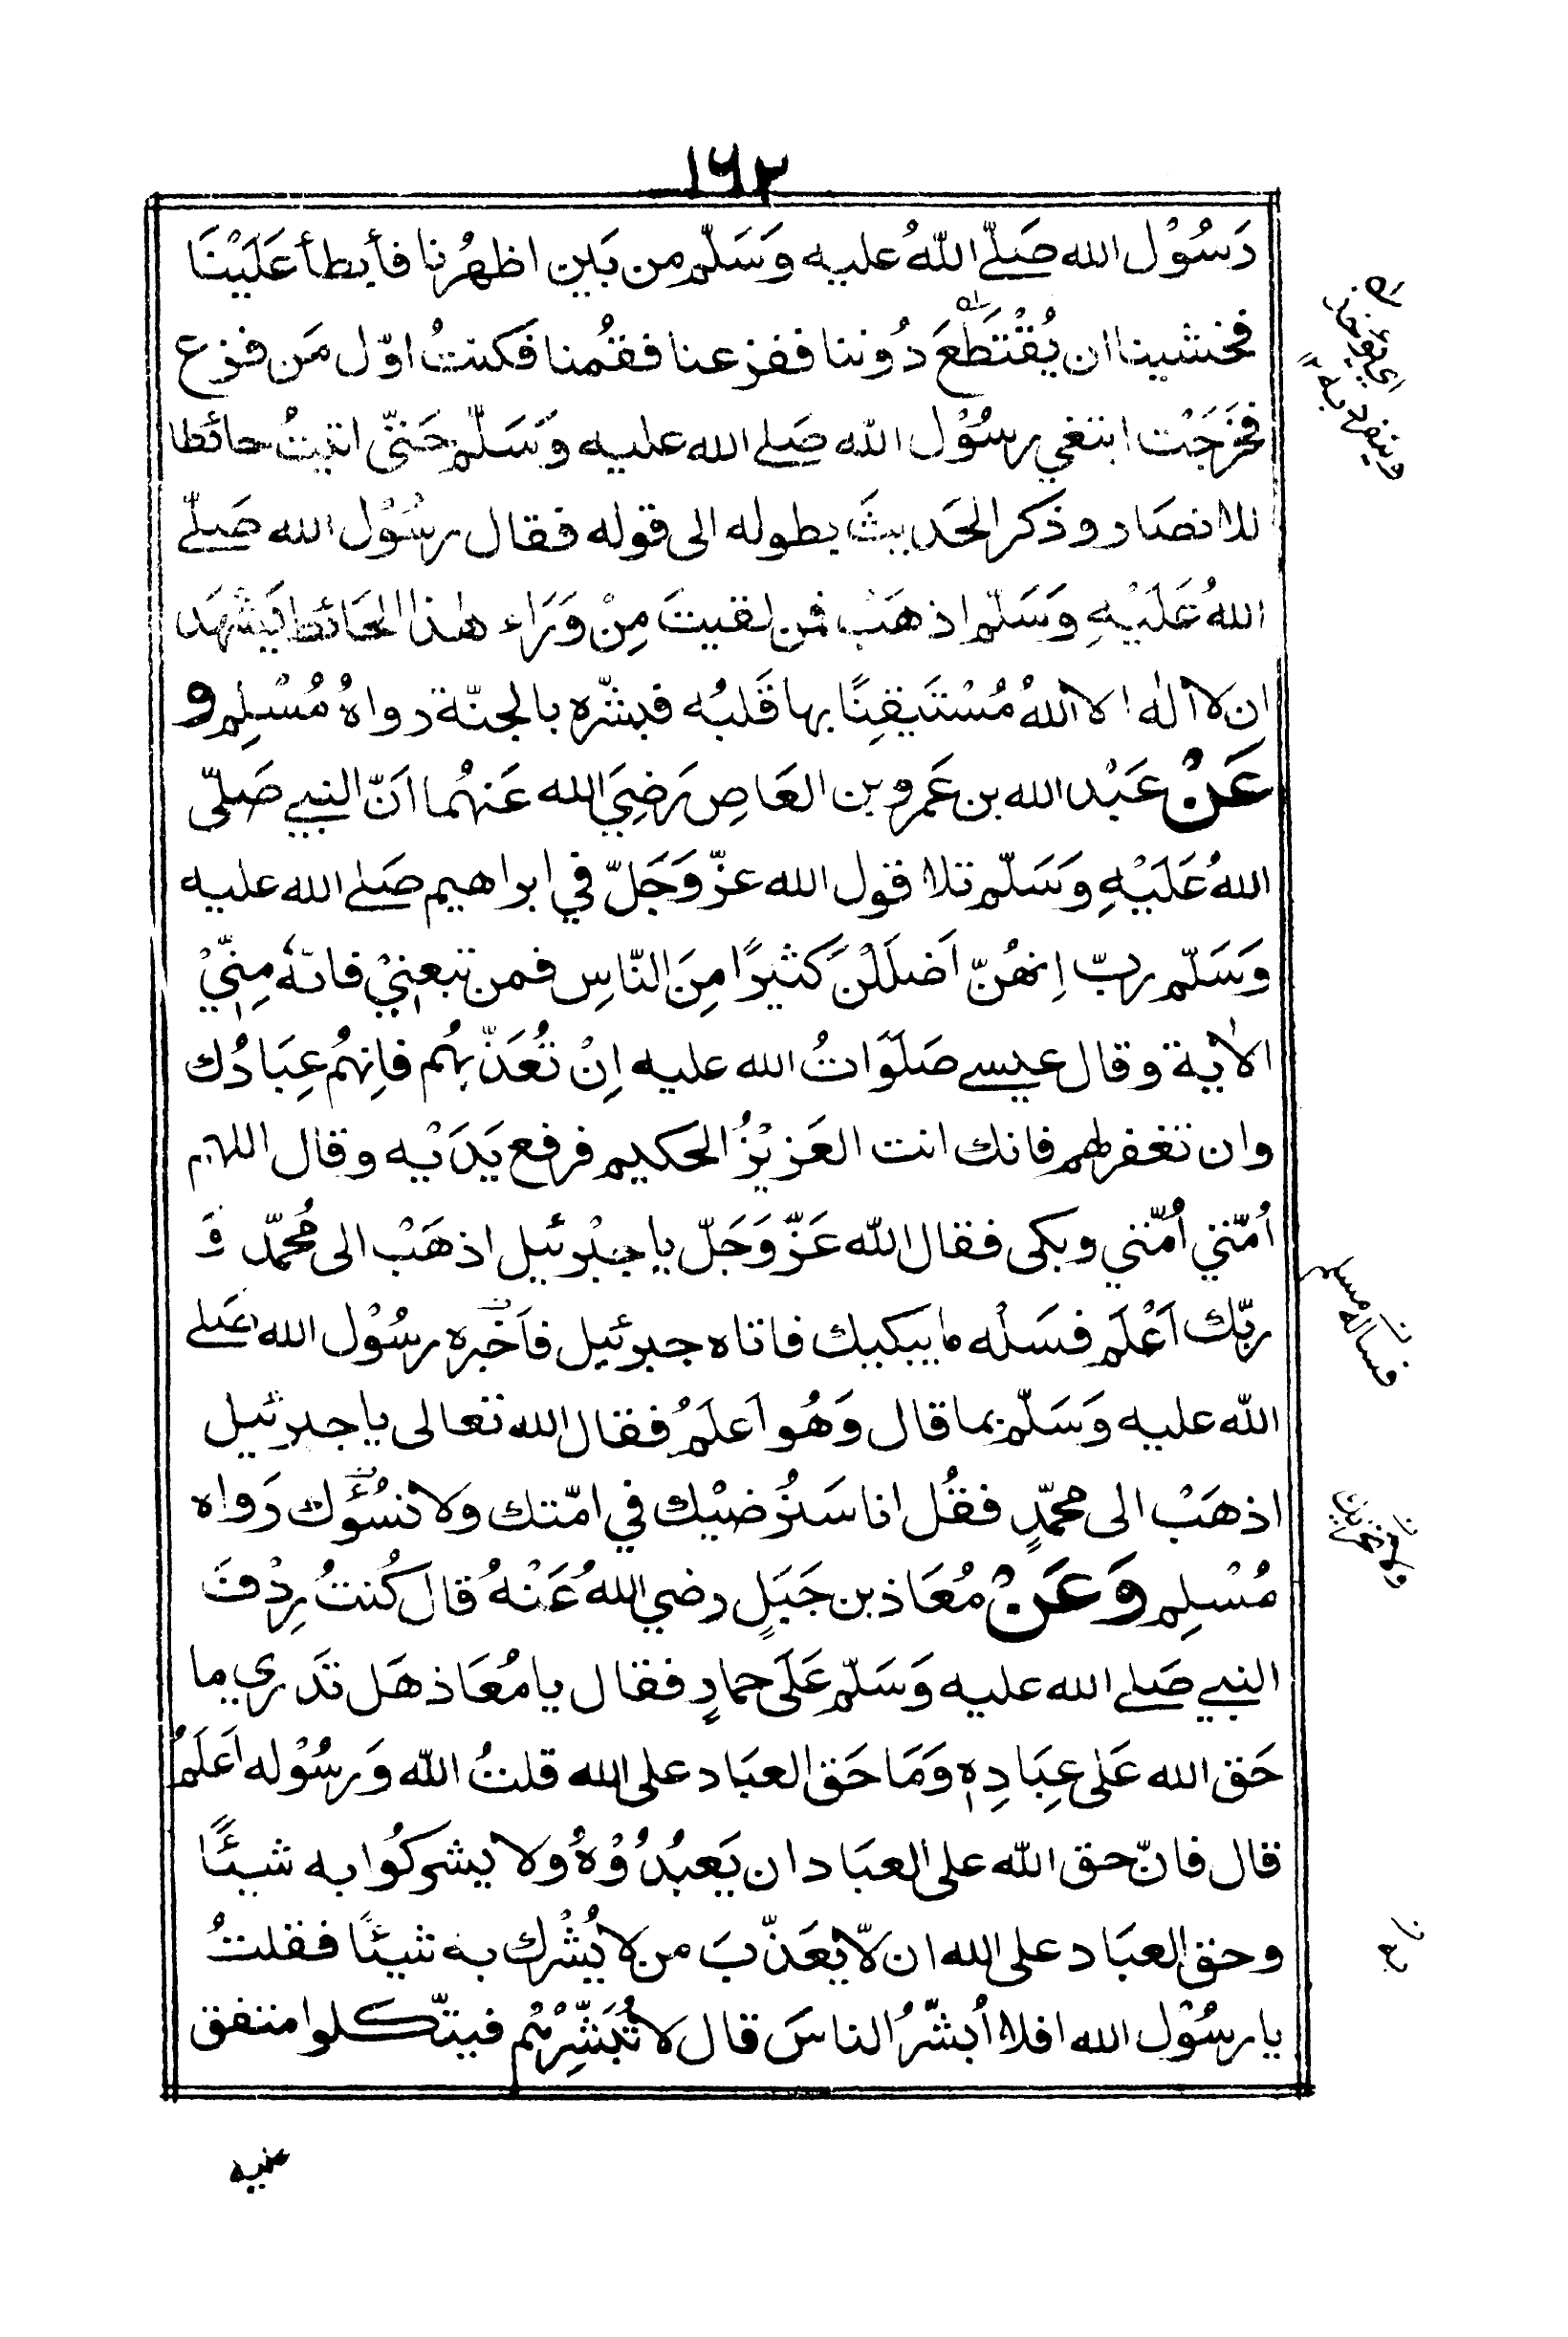 ١٦٢
رَسُوْل الله صَلَّے اللهُ عليه وَسَلَّم من بَين اظهُرنا فأبطأ عَلَيْنَا
فخشينا ان يُقْتَطَعَ دُوننا ففزعنا فقُمنا فكنتُ اوّل مَن فزع
فخَرَجْت ابتغي رسُوْل الله صَلے الله عليه وَسَلَّم حَتّى اتيتُ حائطا
للانصَار وذكر الحَديثَ بطوله الى قوله فقال رسُوْل الله صَلّے
اللهُ عَلَيْهِ وَسَلَّم اذهَبْ فمن لقيتَ مِنْ وَرَاء هٰذا الحَائط يَشْهَد
ان لا اله الا اللهُ مُسْتَيقِنًا بها قَلبُه فبشّره بالجنّة رواهُ مُسْلِم و
عَنْ عَبْد الله بن عَمرو بن العَاصِ رَضِيَ الله عَنهُما اَنّ النبيے صَلّى
اللهُ عَلَيْهِ وَسَلَّم تلا قول الله عزّ وَجَلّ في ابراهيم صَلے الله عليه
وَسَلّم ربّ اِنهُنّ اَضلَلْنَ كَثيرًا مِنَ النّاسِ فمن تبعنِيْ فانهٗ مِنّيْ
الاٰية وقال عيسے صَلَوَاتُ الله عليه اِنْ تُعَذّبهُم فاِنهُم عِبَادُك
وان تغفر لهم فانك انت العَزيْزُ الحكيم فرفع يَدَيْه وقال اللهم
اُمّتي اُمّتي وبكى فقال الله عَزّ وَجَلّ يا جبْرئيل اذهَبْ الى مُحمّد وَ
ربّك اَعْلَم فسَلْه ما يبكيك فاتاه جبرئيل فاَخْبره رسُوْل الله صَلے
الله عليه وَسَلّم بما قال وَهُو اَعلَمُ فقال الله تعالى يا جبرئيل
اذهَبْ الى محمّدٍ فقُل انا سَنُرضيْك في امّتك ولا نسُؤك رَواه
مُسْلِم وَعَنْ مُعَاذ بن جَبَلٍ رضي اللهُ عَنْهُ قال كُنتُ رِدْفَ
النبيے صَلے الله عليه وَسَلّم عَلَى حمارٍ فقال يا مُعَاذ هَل تَدري ما
حَق الله عَلى عِبَادِهٖ وَمَا حَق العبَاد على الله قلتُ الله وَرسُوْله اَعلَمُ
قال فانّ حق الله على العبَاد ان يَعبُدُوْهُ ولا يشركُوا به شيئًا
وحق العبَاد على الله ان لّا يعَذّبَ من لا يُشْرك به شيئًا فقلتُ
يا رسُوْل الله افلا اُبشّرُ الناسَ قال لا تُبَشّرْهُم فيتّكلوا متفق
اي يؤخذ
وينفرد به ١٢
فساله مسلم
عليه